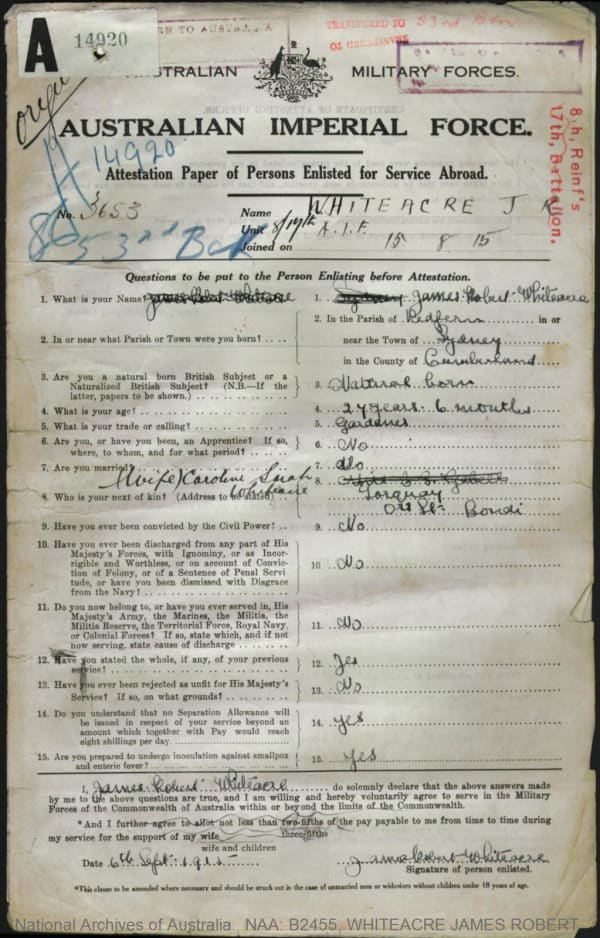 A 14920
TO AUSTRALIA
TRANSFERRED TO 53rd Battn
TRANSFERRED TO
AUSTRALIAN MILITARY FORCES.
AUSTRALIAN IMPERIAL FORCE.
14920
Attestation Paper of Persons Enlisted for Service Abroad.
8th, Reinf's
17th, Battalion.
No. 3653
Name WHITEACRE J R
Unit 8/17th A.I.F.
Joined on 15 8 15
53rd Bat
Questions to be put to the Person Enlisting before Attestation.
1. What is your Name?
1. James Robert Whiteacre
2. In or near what Parish or Town were you born?
2. In the Parish of Redfern in or
near the Town of Sydney
in the County of Cumberland
3. Are you a natural born British Subject or a
Naturalized British Subject? (N.B.—If the
latter, papers to be shown.)
3. Natural born
4. What is your age?
4. 27 years 6 months
5. What is your trade or calling?
5. Gardener
6. Are you, or have you been, an Apprentice? If so,
where, to whom, and for what period?
6. No
7. Are you married?
7. No
(Wife) Caroline Sarah
Whiteacre
8. Who is your next of kin? (Address to be stated)
8. Torquay
St. Bondi
9. Have you ever been convicted by the Civil Power?
9. No
10. Have you ever been discharged from any part of His
Majesty's Forces, with Ignominy, or as Incor-
rigible and Worthless, or on account of Convic-
tion of Felony, or of a Sentence of Penal Servi
tude, or have you been Dismissed with Disgrace
from the Navy?
10. No
11. Do you now belong to, or have you ever served in, His
Majesty's Army, the Marines, the Militia, the
Militia Reserve, the Territorial Force, Royal Navy,
or Colonial Forces? If so, state which, and if not
now serving, state cause of discharge
11. No
12. Have you stated the whole, if any, of your previous
service?
12. Yes
13. Have you ever been rejected as unfit for His Majesty's
Service? If so, on what grounds?
13. No
14. Do you understand that no Separation Allowance will
be issued in respect of your service beyond an
amount which together with Pay would reach
eight shillings per day
14. Yes
15. Are you prepared to undergo inoculation against smallpox
and enteric fever?
15. Yes
I, James Robert Whiteacre do solemnly declare that the above answers made
by me to the above questions are true, and I am willing and hereby voluntarily agree to serve in the Military
Forces of the Commonwealth of Australia within or beyond the limits of the Commonwealth.
*And I further agree to allot not less than two-fifths of the pay payable to me from time to time during
three-fifths
my service for the support of my wife
wife and children
Date 6th Sept. 1915
James Robert Whiteacre
Signature of person enlisted.
*This clause to be amended where necessary and should be struck out in the case of unmarried men or widowers without children under 18 years of age.
National Archives of Australia NAA: B2455, WHITEACRE JAMES ROBERT